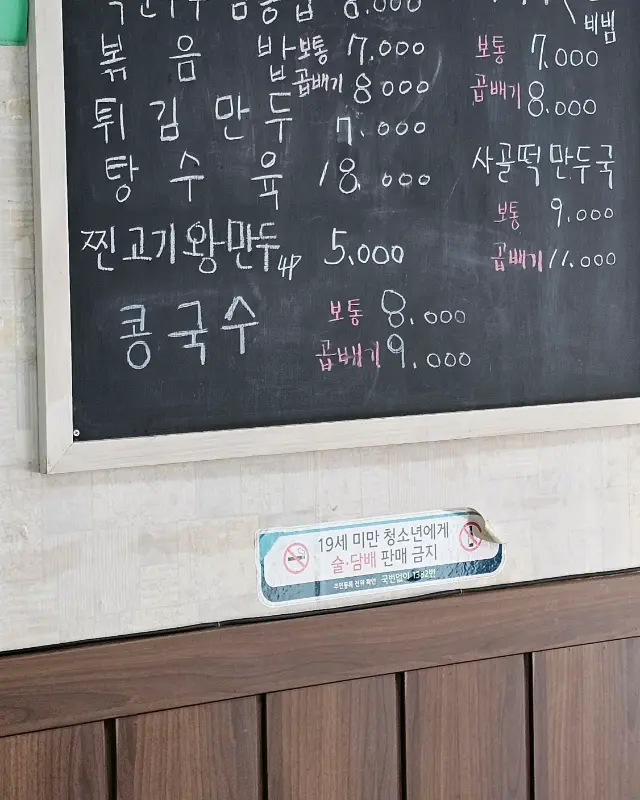 8.000
볶음밥 보통 7.000
곱배기 8000
튀김만두 7.000
탕수육 18.000
찐고기왕만두 4P 5.000
콩국수 보통 8.000
곱배기 9.000
비빔
보통 7.000
곱배기 8.000
사골떡만두국
보통 9.000
곱배기 11.000
19세 미만 청소년에게
술·담배 판매 금지
주민등록 진위 확인 국번없이 1382번